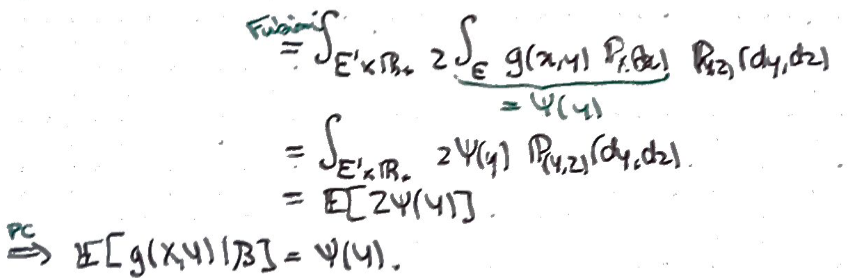 Fubini
= ∫_{E'×ℝ₊} z ∫_E g(x,y) ℙ_X(dx) ℙ_{(Y,Z)}(dy,dz)
= Ψ(y)
= ∫_{E'×ℝ₊} zΨ(y) ℙ_{(Y,Z)}(dy,dz).
= 𝔼[ZΨ(Y)].
PC
⟹ 𝔼[g(X,Y)|𝓑] = Ψ(Y).